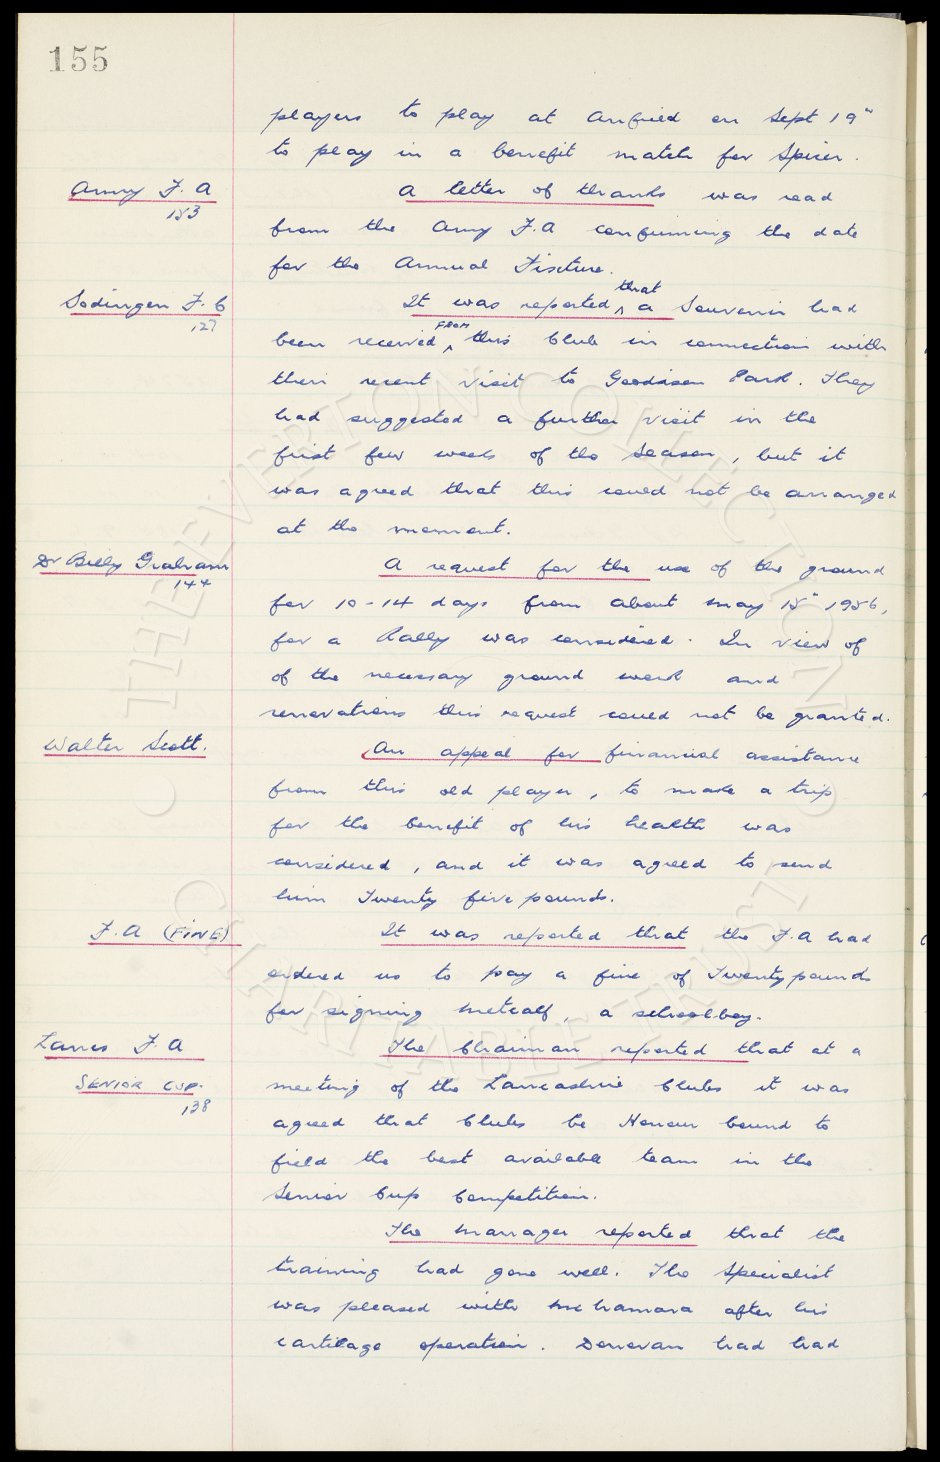 155
players to play at Anfield on Sept 19"
to play in a benefit match for Spicer.
Army F.A
153
A letter of thanks was read
from the Army F.A confirming the date
for the Annual Fixture.
Sodingen F.C
127
It was reported that a Souvenir had
been received FROM this Club in connection with
their recent visit to Goodison Park. They
had suggested a further visit in the
first few weeks of the season, but it
was agreed that this could not be arranged
at the moment.
Dr Billy Graham
144
A request for the use of the ground
for 10-14 days from about May 15" 1956,
for a Rally was considered. In view of
of the necessary ground work and
renovations this request could not be granted.
Walter Scott.
An appeal for financial assistance
from this old player, to make a trip
for the benefit of his health was
considered, and it was agreed to send
him Twenty five pounds.
F.A (FINE)
It was reported that the F.A had
ordered us to pay a fine of Twenty pounds
for signing Metcalf, a schoolboy.
Lancs F.A
SENIOR CUP.
138
The Chairman reported that at a
meeting of the Lancashire Clubs it was
agreed that Clubs be Honour bound to
field the best available team in the
Senior Cup Competition.
The Manager reported that the
training had gone well. The Specialist
was pleased with McNamara after his
cartilage operation. Donovan had had
© THE EVERTON COLLECTION
CHARITABLE TRUST